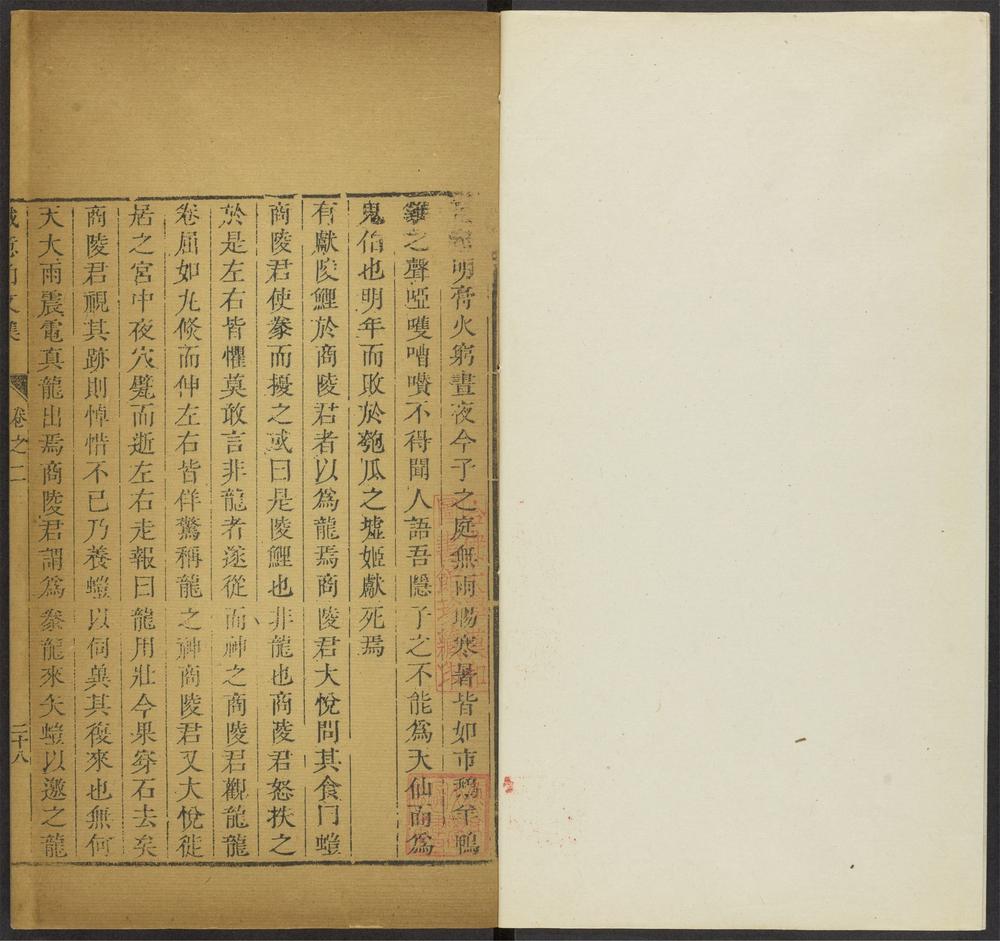 明膏火窮晝夜今子之庭無雨暘寒暑皆如市鵝羊鴨
雞之聲啞嚄嘈囋不得聞人語吾隱子之不能為天仙而為
鬼伯也明年而敗於匏瓜之墟姬獻死焉
有獻陵鯉於商陵君者以為龍焉商陵君大悅問其食曰螘
商陵君使豢而擾之或曰是陵鯉也非龍也商陵君怒抶之
於是左右皆懼莫敢言非龍者遂從而神之商陵君觀龍龍
卷屈如丸倐而伸左右皆佯驚稱龍之神商陵君又大悅徙
居之宮中夜穴甓而逝左右走報曰龍用壯今果穿石去矣
商陵君視其跡則悼惜不已乃養螘以伺兾其復來也無何
天大雨震電真龍出焉商陵君謂為豢龍來矢螘以邀之龍
誠意伯文集 卷之二 二十八